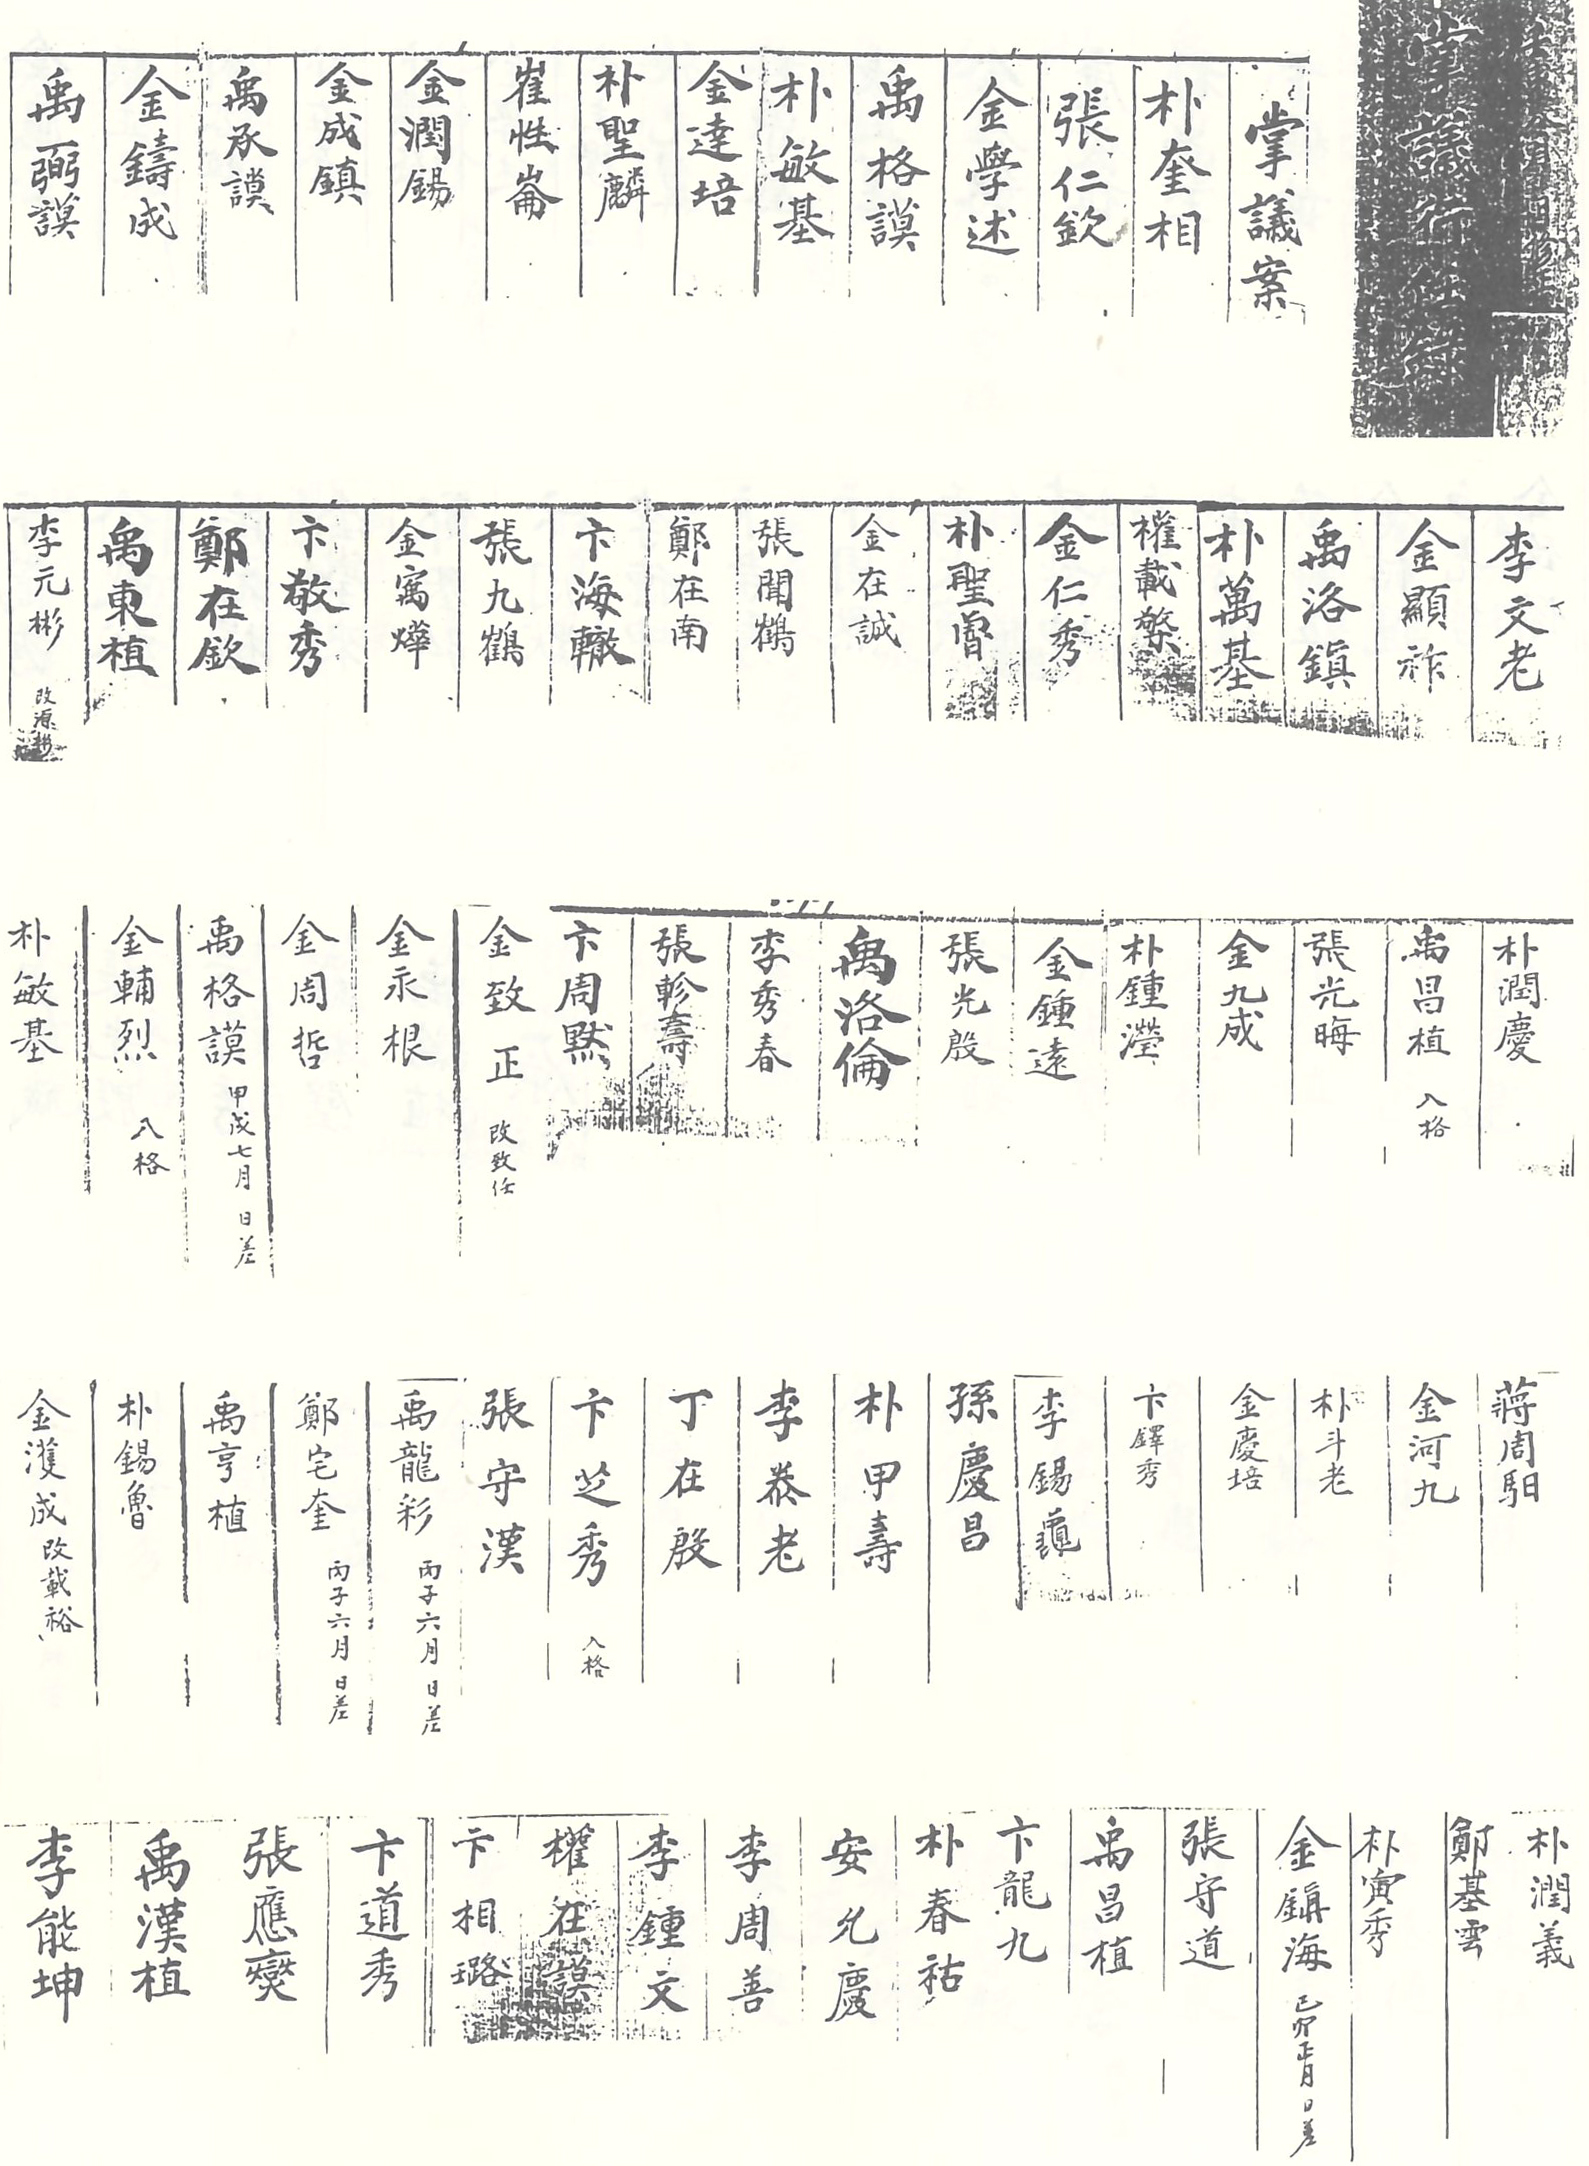 掌議案
朴奎相
張仁欽
金學述
禹格謨
朴敏基
金達培
朴聖麟
崔性崙
金潤錫
金成鎮
禹承謨
金鑄成
禹弼謨
李文老
金顯祚
禹洛鎭
朴萬基
權載檠
金仁秀
朴聖曾
金在誠
張聞鶴
鄭在南
卞海轍
張九鶴
金寓燁
卞敬秀
鄭在欽
禹東植
李元彬 改源彬
朴潤慶
禹昌植 入格
張光晦
金九成
朴鍾瀅
金鍾遠
張光殷
禹洛倫
李秀春
張軫壽
卞周默
金致正 改致任
金永根
金周哲
禹格謨 甲戌七月 日差
金輔烈 入格
朴敏基
蔣周馹
金河九
朴斗老
金慶培
卞鐸秀
李錫龜
孫慶昌
朴甲壽
李泰老
丁在殷
卞芝秀 入格
張守漢
禹龍彩 丙子六月 日差
鄭宅奎 丙子六月 日差
禹亨植
朴錫魯
金濩成 改載裕
朴潤義
鄭基雲
朴寅秀
金鎭海 己卯正月 日差
張守道
禹昌植
卞龍九
朴春祜
安允慶
李周善
李鍾文
權在謨
卞相璐
卞道秀
張應爕
禹漢植
李能坤